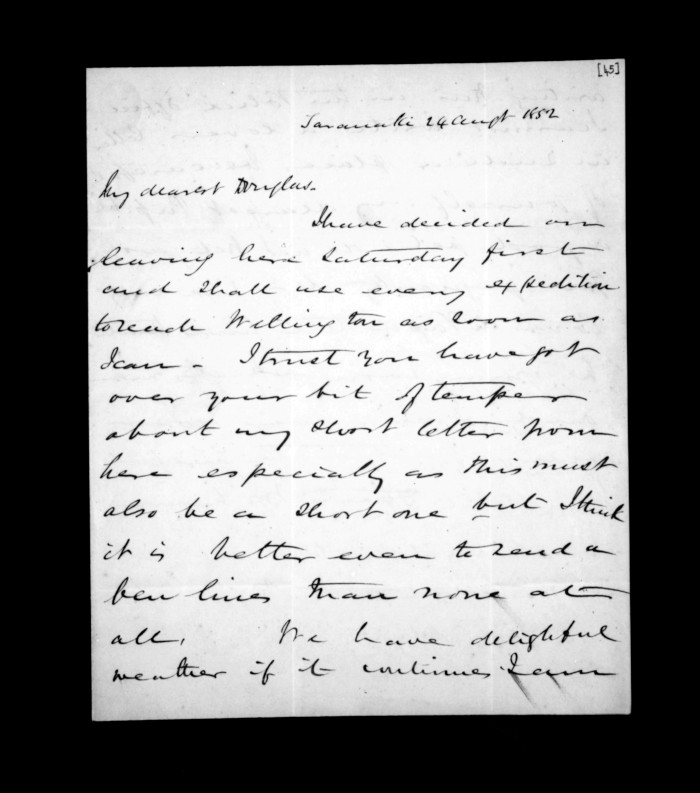 [45]
Taranaki 24 Augt 1852
My dearest Douglas.
I have decided on
leaving here Saturday first
and shall use every expedition
to reach Wellington as soon as
I can - I trust you have got
over your bit of temper
about my short letter from
here especially as this must
also be a short one but I think
it is better even to send a
few lines than none at
all. We have delightful
weather if it continues I am